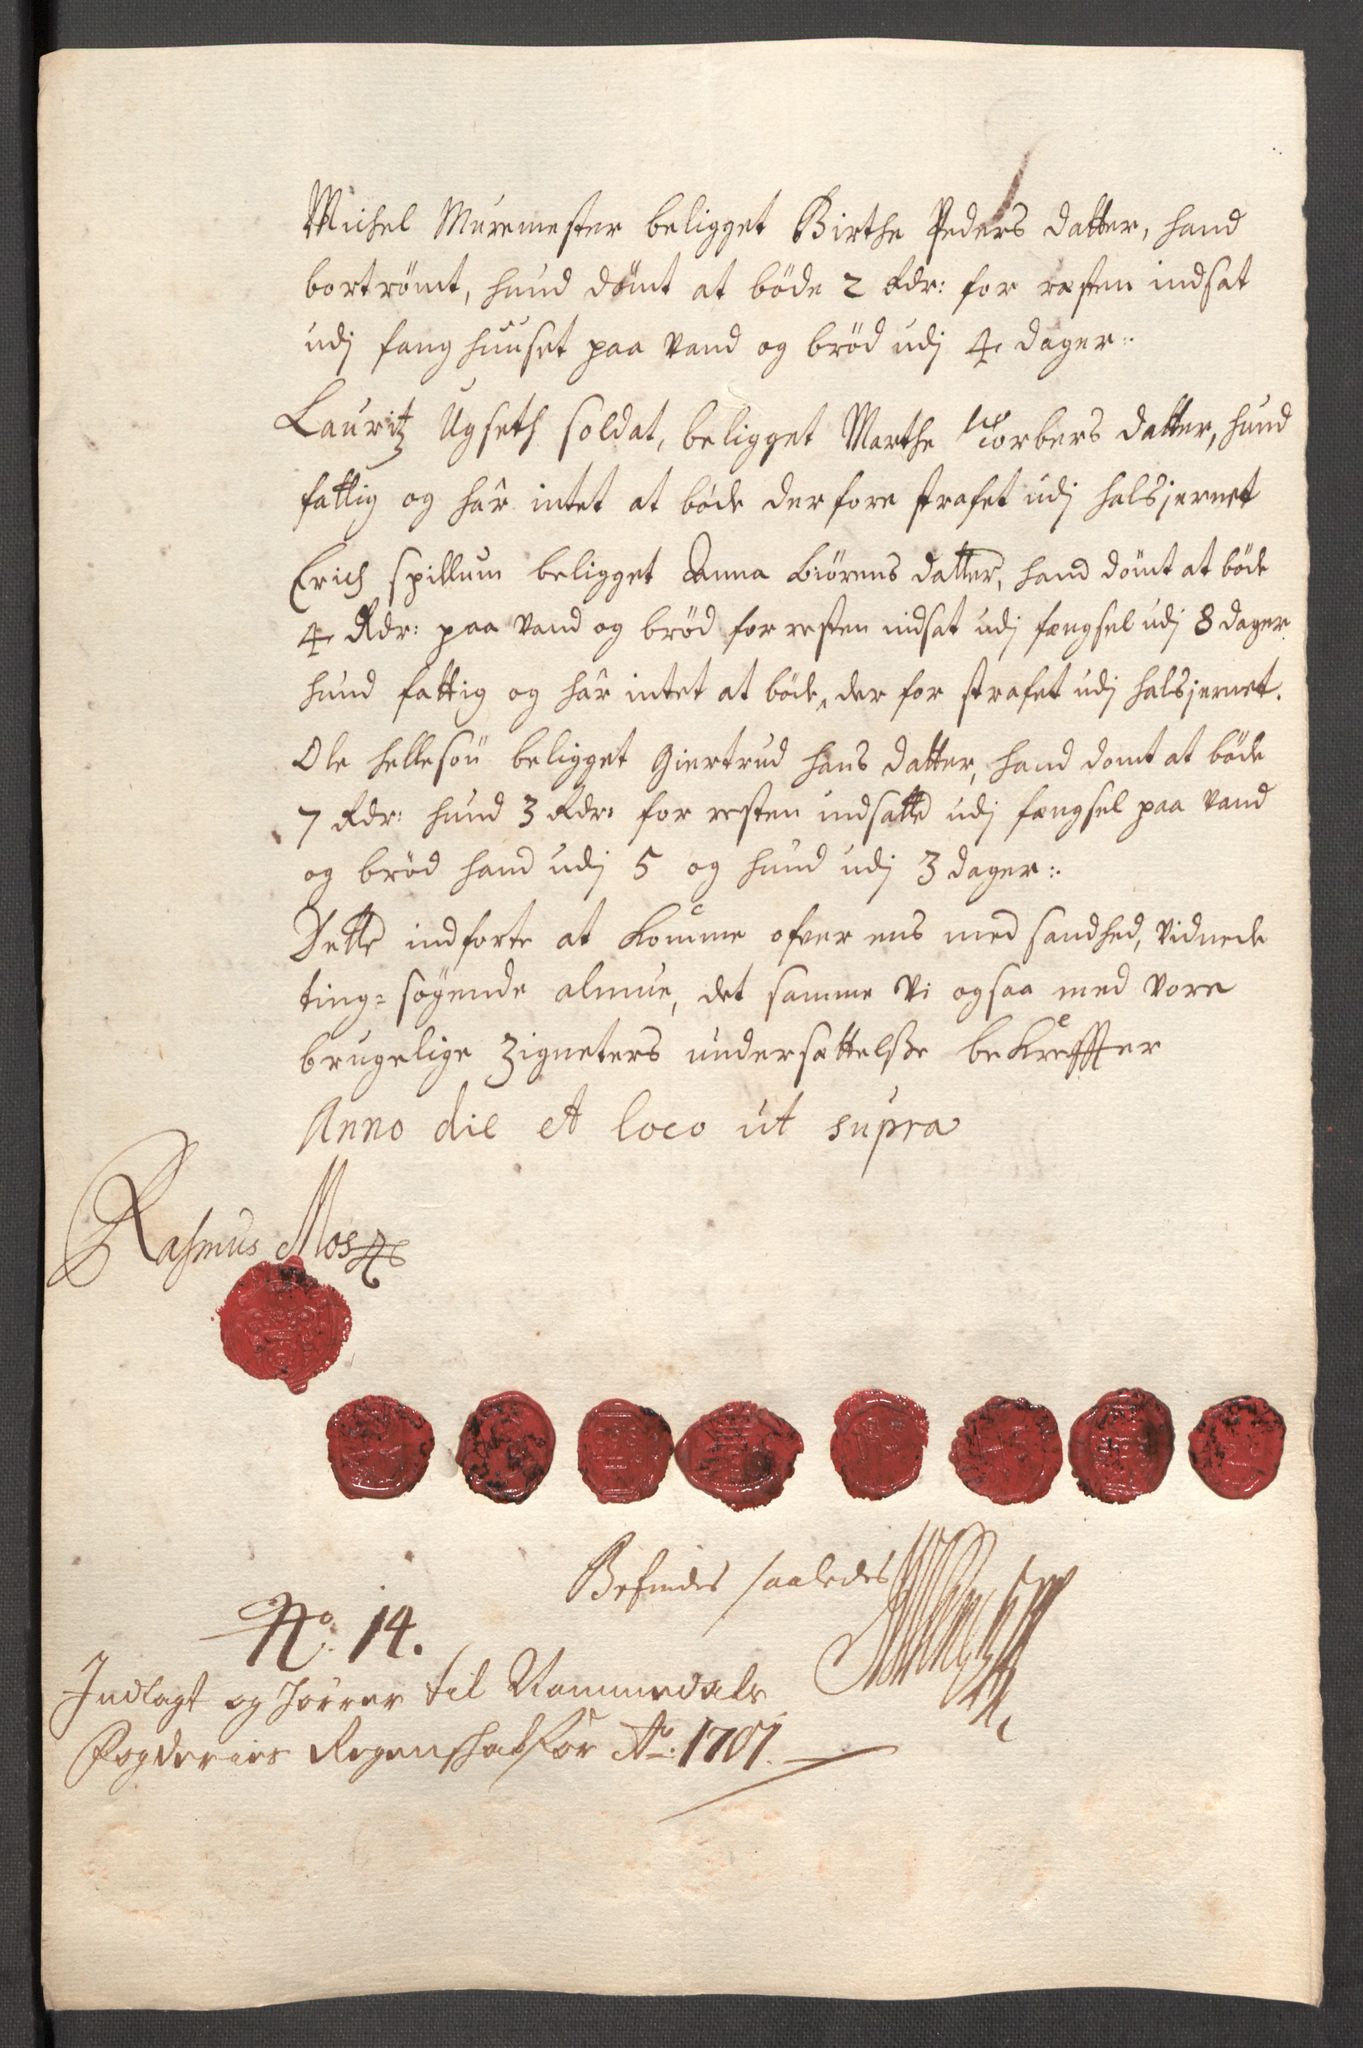 Michel Muremester beligget Birthe Peders datter, hand
bortrömt, hund dömt at böde 2 Rdr: for resten indsat
udj fanghuuset paa vand og bröd udj 4 dager:.
Lauritz Ugseth soldat, beligget Marthe Torbers datter, hund
fattig og har intet at böde derfore strafet udj halsjernet
Erich Spillum beligget Anna Biörens datter, hand dömt at böde
4 Rdr: paa vand og bröd for resten indsat udj fængsel udj 8 dager
hund fattig og har intet at böde, der for strafet udj halsjernet.
Ole Hellesön beligget Giertrud Hans datter, hand domt at böde
7 Rdr: hund 3 Rdr: for resten indsatte udj fængsel paa vand
og bröd hand udj 5 og hund udj 3 dager:.
Dette indforte at komme ofver ens med sandhed, vidnede
ting=sögende almue, det samme vi ogsaa med vore
brugelige Zigneters undersættelsse bekreffter
Anno die et loco ut supra
Rasmus Mos
Befindes saaledes
No. 14.
Indlagt og hörer til Nummedals
Fogderies Regenskab for Ao: 1701.